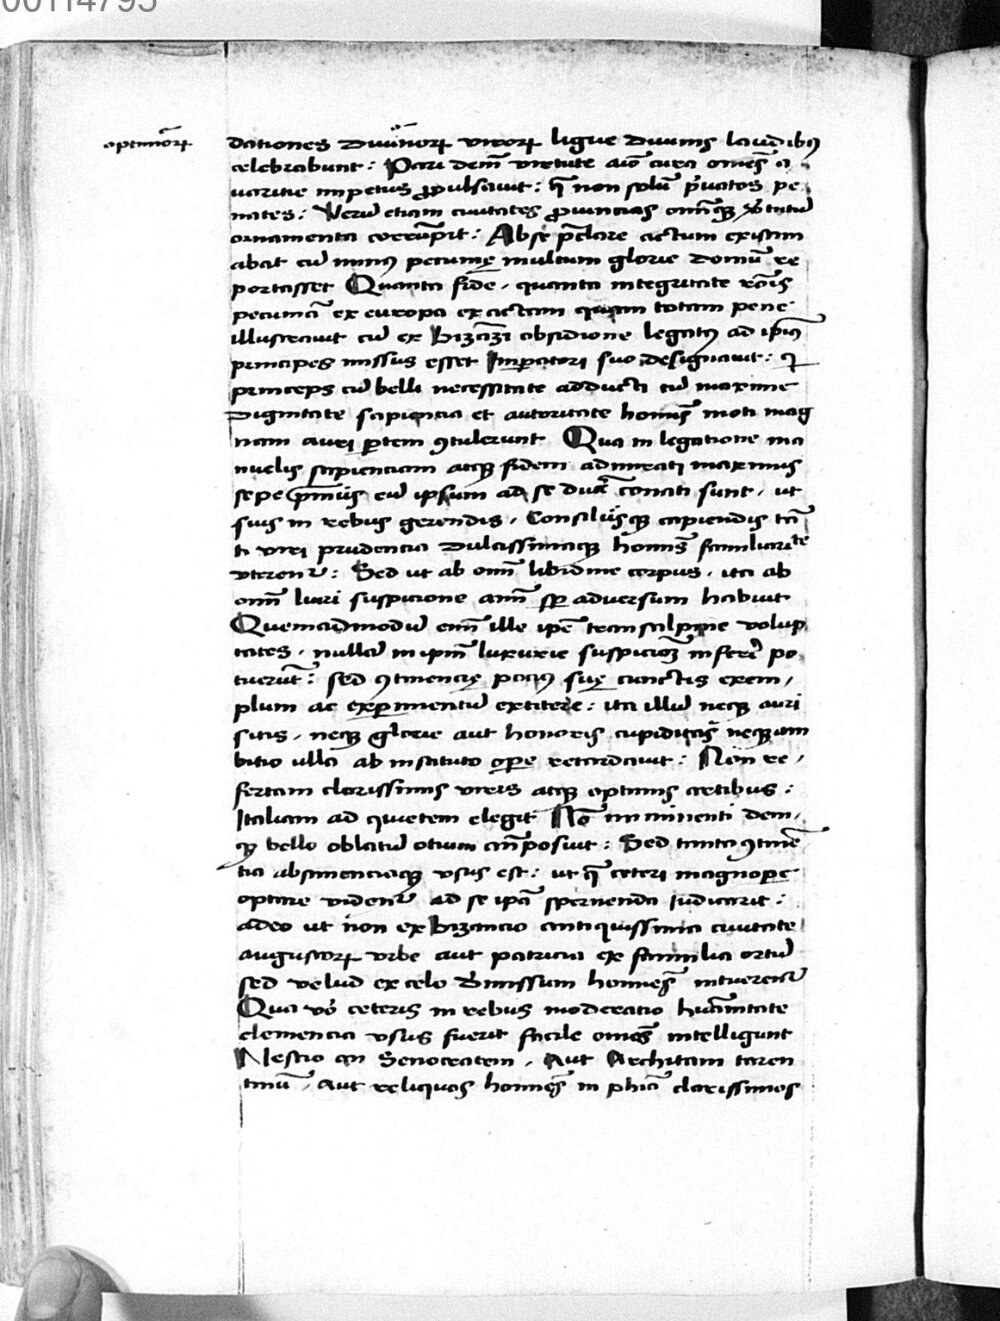 00114795
optimoꝝ
dationes diuinoꝝ viroꝝ ligue diuinis laudibꝰ
celebrabunt: Pari dem̄ virtute aīo cura om̄es a
uaritie impetus ꝓpulsauit: q̄ non solū p̄uatos pe
nates: Verū etiam ciuitates ꝓuincias om̄iqꝫ virtutū
ornamenta corrūpit: Ab se p̄clare actum existim
abat cū minꝰ pecunię multum glorie domū re
portasset Quanta fide, quanta integritate
pecuniā ex europa exactam quam totam pene
illustrauit cū ex bizāzi obsidione legatꝰ ad ipīꝰ
principes missus esset Imperatori suo designauit:
princeps cū belli necessitate adducti tū maxime
dignitate sapientia et autoritate hominis moti mag
nam auri ꝑtem ꝯtulerunt Qua in legatione ma
nuelis sapienciam atqꝫ fidem admirati maximis
sepe p̄miis eū ipsum ad se ducē conati sunt, ut
suis in rebus gerendis, Consiliisqꝫ capiendis tā
ti viri prudencia dulcissimaqꝫ hominis familiaritate
vterent᷑: Sed ut ab omī libidine corpus, ita ab
omī luxuri suspicione animū sꝑ aduersum habuit
Quemadmodū enī ille ipē volup
tates, nullā in ipm̄ luxurie suspicionē inferri po
tuerūt: sed ꝯtinencię pociꝰ suę cunctis exem,
plum ac experimentū extitere: ita illū neqꝫ auri
sitis, neqꝫ glorie aut honoris cupiditas neqꝫ am
bitio ulla ab instituto opere retardauit: Nam re,
fertam clarissimis viris atqꝫ optimis artibus:
Italiam ad quietem elegit Nō imminenti deni,
qꝫ bello oblatū otium anteposuit: Sed tanta ꝯtinē
tia abstinenciaqꝫ vsus est: ut q̄ ceteri magnopere
optare videnť ad se ipā spernenda iudicarit:
adeo ut non ex bizancio antiquissima ciuitate
augustoꝝ vrbe aut patricia ex familia ortū
sed velud ex celo dimissum homines intuerent᷑
Qua vō ceteris in rebus moderatio humanitate
clemencia vsus fuerit facile omēs intelligunt
Nescio an Senocratem, Aut Architam taren
tinū, Aut reliquos homīes in phīa clarissimos